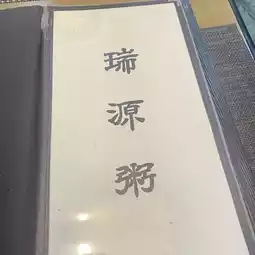 瑞源粥